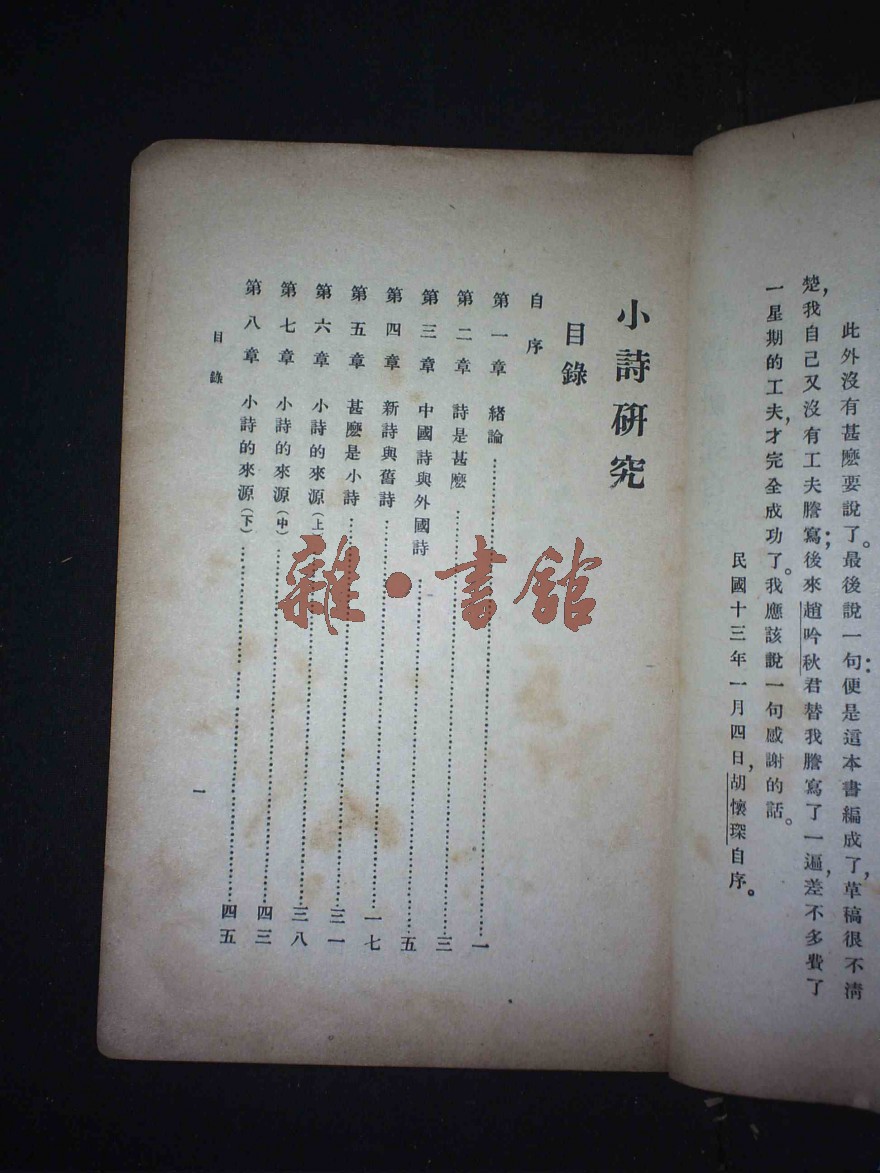 此外沒有甚麽要說了。最後說一句:便是這本書編成了,草稿很不清
楚,我自己又沒有工夫謄寫;後來趙吟秋君替我謄寫了一遍,差不多費了
一星期的工夫,才完全成功了。我應該說一句感謝的話。
民國十三年一月四日,胡懷琛自序。
小詩研究
目錄
自序
第一章 緒論…………一
第二章 詩是甚麽…………三
第三章 中國詩與外國詩…………五
第四章 新詩與舊詩…………一七
第五章 甚麽是小詩…………三一
第六章 小詩的來源(上)…………三八
第七章 小詩的來源(中)…………四三
第八章 小詩的來源(下)…………四五
目錄
一
雜·書館